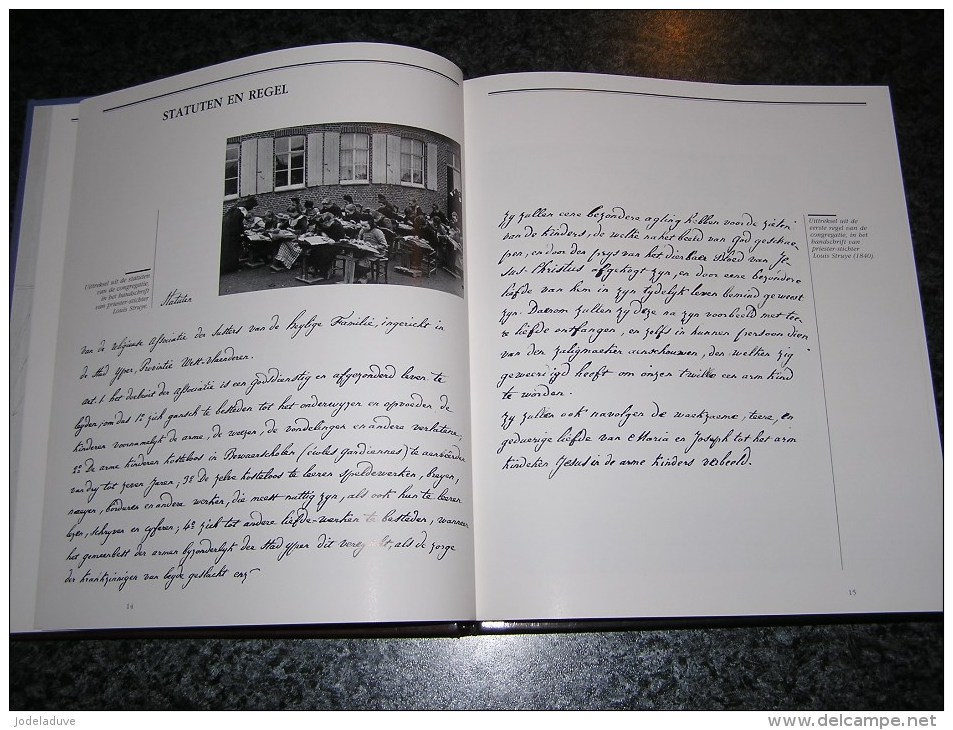 STATUTEN EN REGEL
Uittreksel uit de statuten
van de congregatie,
in het handschrift
van priester-stichter
Louis Struye.
Statuten
van de religieuse associatie der Susters van de heylige Familie, ingericht in
de Stad Yper, Provintie West-vlaenderen.
art. 1 het doelwit der associatie is een godsdienstig en afgezonderd leven te
leyden, om das 1º zich gansch te besteden tot het onderwyzen en opvoeden de
kinderen voornamelyk de arme, de weezen, de vondelingen en andere verlatene,
2º De arme kinderen kosteloos in Bewaerscholen (écoles gardiennes) te aenveerden
van dry tot zeven Jaren; 3º De zelve kosteloos te leeren Speldewerken, breyen,
naeyen, borderen en andere werken, die meest nuttig zyn, als ook hun te leeren
lezen, schryven en cyferen; 4º zich tot andere liefde-werken te besteden, wanneer
het gemeentebest der armen byzonderlyk der Stad Yper dit vereyscht, als de zorge
der krankzinnigen van beyde geslacht enz
14
Zy zullen eene bezondere agting hebben voor de zielen
van de kinders, de welke na het beeld van God geschae-
pen, en door den prys van het dierbaer Bloed van Je-
sus-Christus afgekogt zyn, en door eene bezondere
liefde van hem in zyn tydelyk leven bemind geweest
zyn. Daerom zullen zy deze na zyn voorbeeld met tee-
re liefde ontfangen, en zelfs in hunnen persoon dien
van den zaligmaeker aenschouwen, den welken zig
geweerdigd heeft om onzen twille een arm kind
te worden.
Zy zullen ook navolgen de waekzaeme, teere, en
gedeurige liefde van Maria en Joseph tot het arm
kindeken Jesus in de arme kinders verbeeld.
Uittreksel uit de
eerste regel van de
congregatie, in het
handschrift van
priester-stichter
Louis Struye (1840)
15
jodeladuve
http://www.delcampe.net